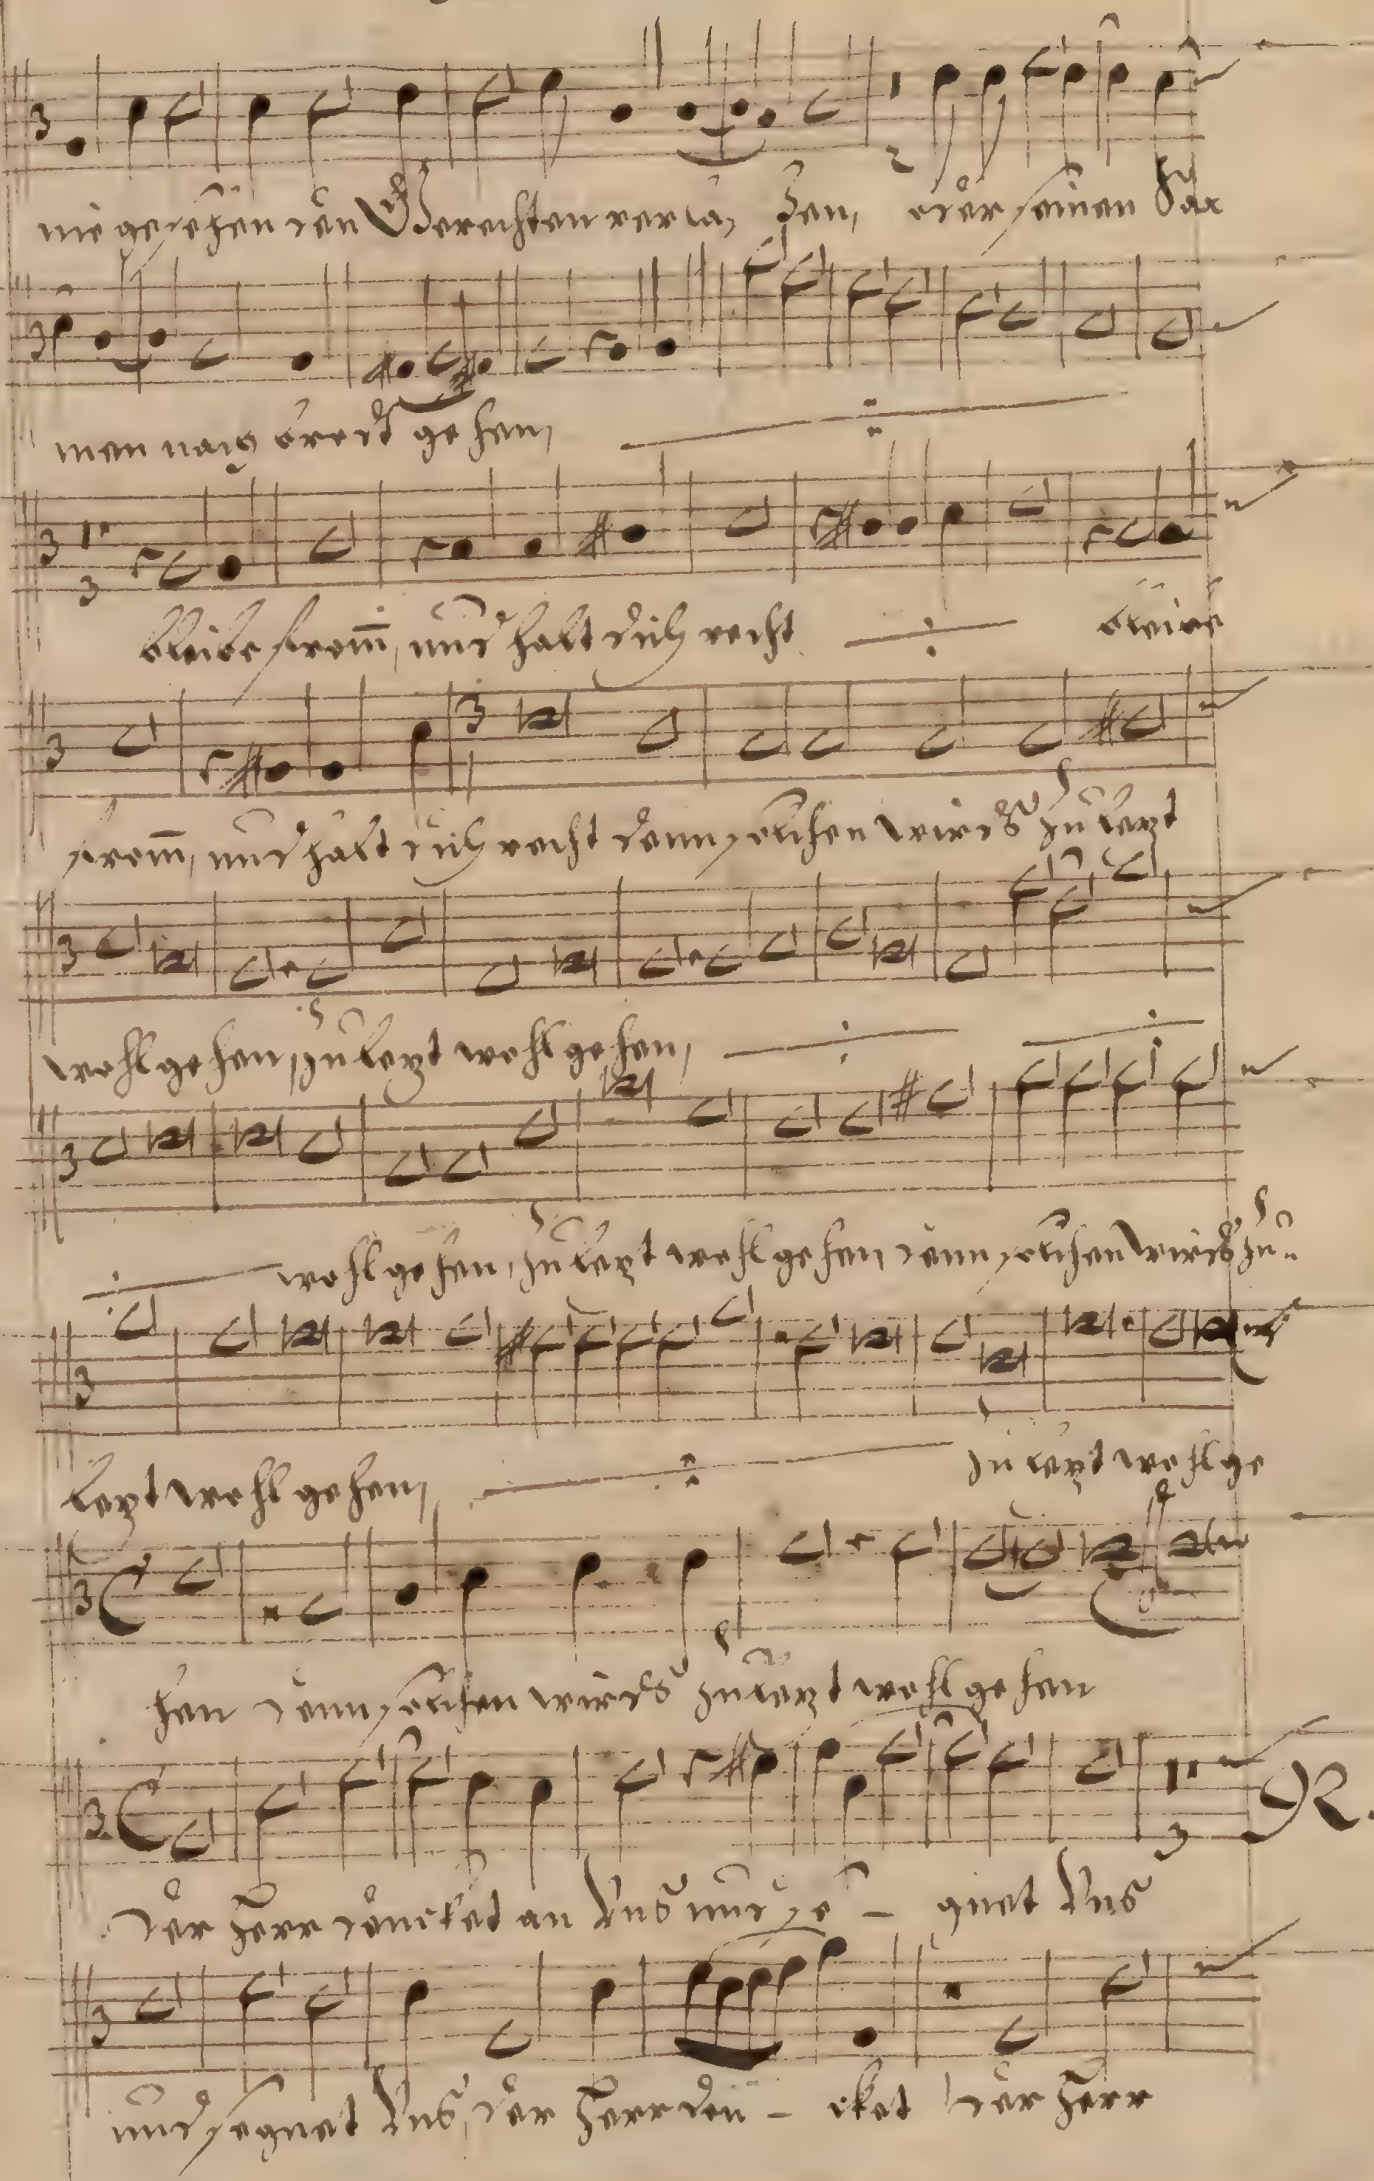 nie gesehen den Gerechten verla, ßen, oder seinen Saa
men nach brodt gehen,
bleibe from̅, und halt dich recht bleibe
from̅, und halt dich recht denn solchen wirds zu lezt
wohl gehen, zu lezt wohl gehen,
wohl gehen, zu lezt wohl gehen, denn solchen wirds zu
lezt wohl gehen, zu lezt wohl ge
hen denn solchen wirds zu lezt wohl gehen
Der Herr dencket an Uns und se - gnet Uns
und segnet Uns, der Herr den - cket der Herr